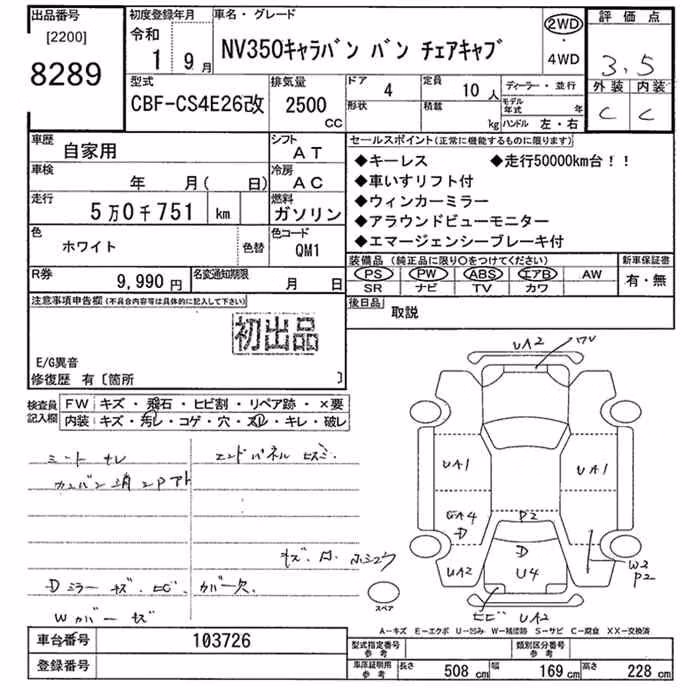 出品番号
[2200]
8289
初度登録年月
令和
1 9月
車名・グレード
NV350キャラバン バン チェアキャブ
2WD
・
4WD
評価点
3.5
外装 内装
C C
型式
CBF-CS4E26改
排気量
2500
CC
ドア
4
定員
10人
形状
積載
kg
ディーラー・並行
モデル年式 年
ハンドル 左・右
車歴
自家用
シフト
AT
車検
年 月( 日)
冷房
AC
走行
5万0千751 km
燃料
ガソリン
色
ホワイト
色替
色コード
QM1
R券
9,990円
名変通知期限
月 日
セールスポイント(正常に機能するものに限ります)
◆キーレス ◆走行50000km台!!
◆車いすリフト付
◆ウィンカーミラー
◆アラウンドビューモニター
◆エマージェンシーブレーキ付
装備品 (純正品に限り○をつけてください)
PS PW ABS エアB AW
SR ナビ TV カワ
新車保証書
有・無
後日品
取説
注意事項申告欄(不具合内容等は具体的に記入して下さい)
初出品
E/G異音
修復歴 有〔箇所 〕
検査員
記入欄
FW キズ・飛石・ヒビ割・リペア跡・×要
内装 キズ・汚レ・コゲ・穴・スレ・キレ・破レ
シート
エンドパネル
Dミラー キズ・
カバー欠
Wカバー キズ
UA2
UA1
UA1
P2
D
D
U4
UA2
W3
P2
ヒビ UA2
スペア
A-キズ E-エクボ U-凹み W-補修跡 S-サビ C-腐食 XX-交換済
車台番号
103726
登録番号
型式指定番号
参考
類別区分番号
参考
車庫証明用
参考
長さ 508 cm 幅 169 cm 高さ 228 cm